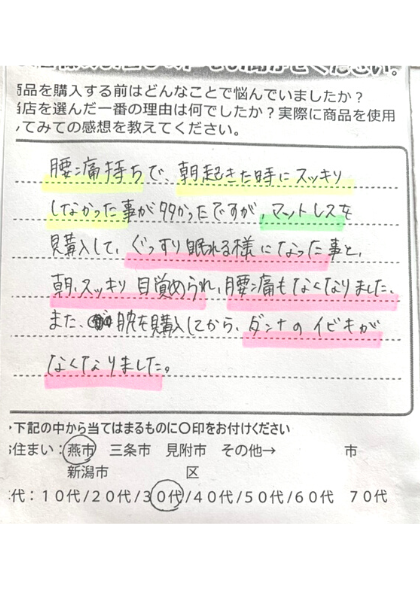 商品を購入する前はどんなことで悩んでいましたか？
当店を選んだ一番の理由は何でしたか？実際に商品を使用
ってみての感想を教えてください。
腰痛持ちで、朝起きた時にスッキリ
しなかった事が多々かったですが、マットレスを
購入して、ぐっすり眠れる様になった事と、
朝、スッキリ目覚められ、腰痛もなくなりました、
また、枕を購入してから、ダンナのイビキが
なくなりました。
下記の中から当てはまるものに○印をお付けください
お住まい：燕市 三条市 見附市 その他→ 市
新潟市 区
代：１０代/２０代/３０代/４０代/５０代/６０代 ７０代